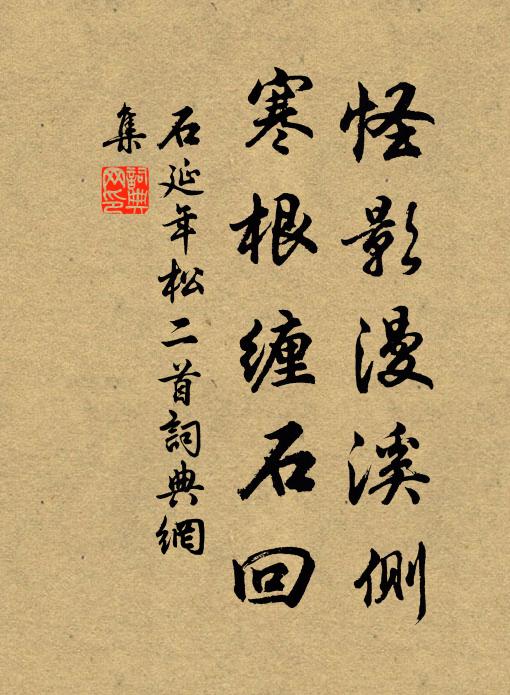 怪影漫溪側
寒根纏石回
石延年松二首詞典網
集
詞典網印